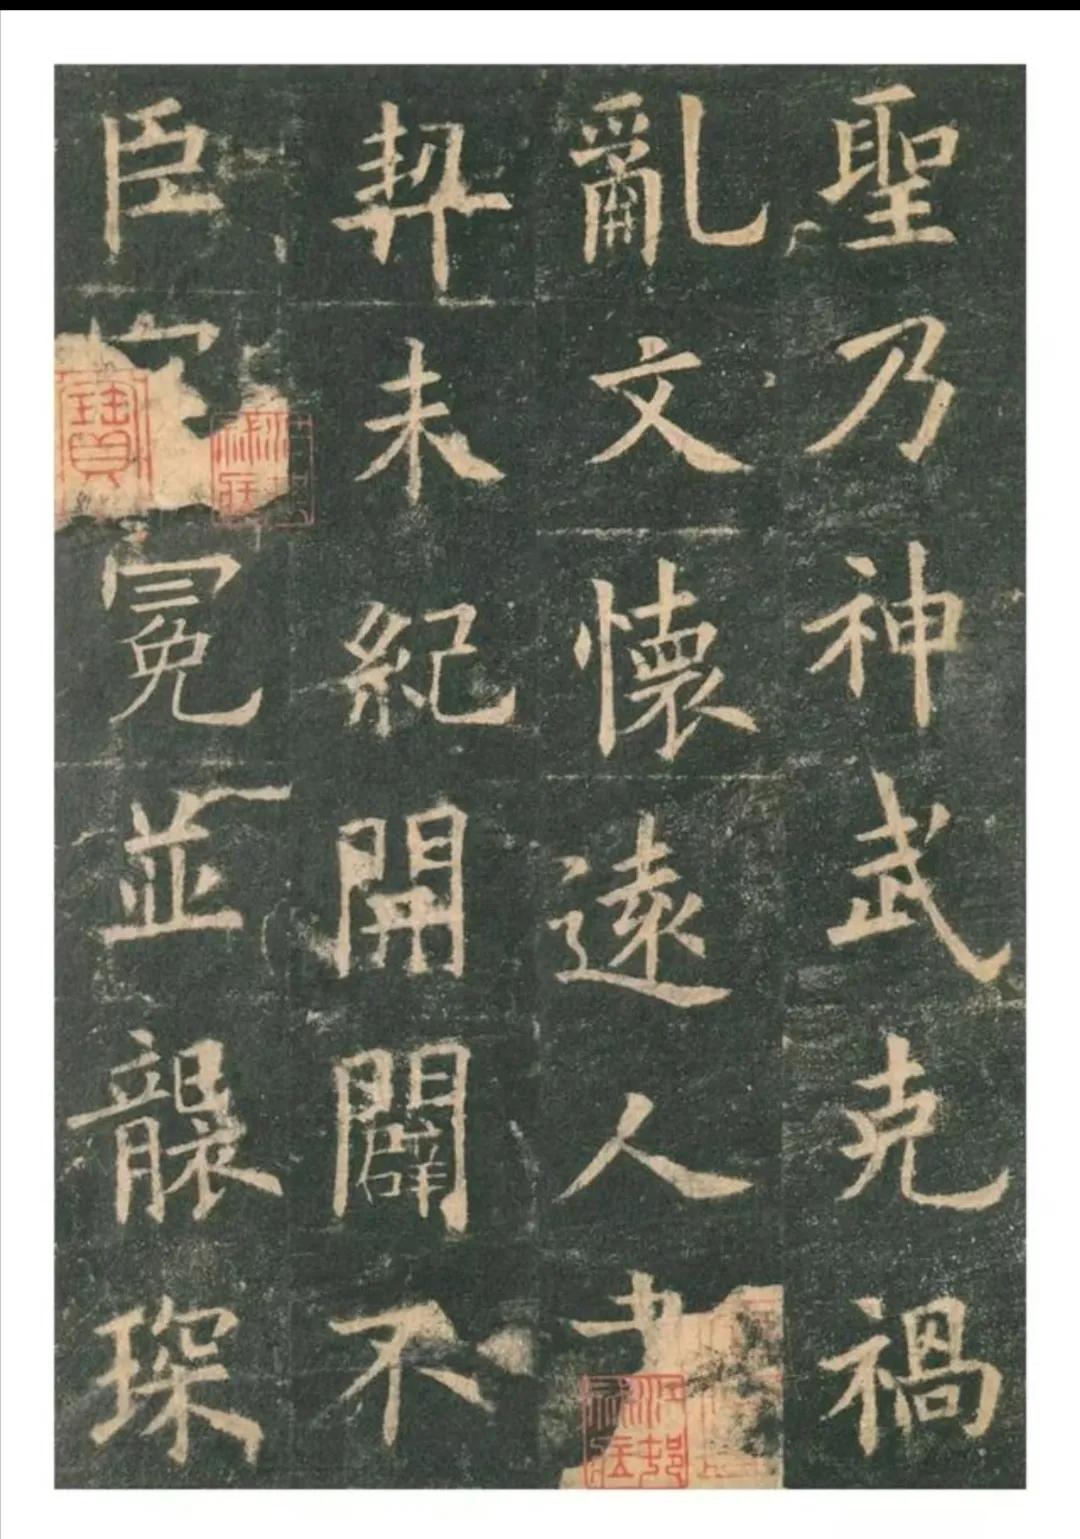 聖乃神武克禍
亂文懷遠人
契未紀開闢不
臣冕並襲琛
寶